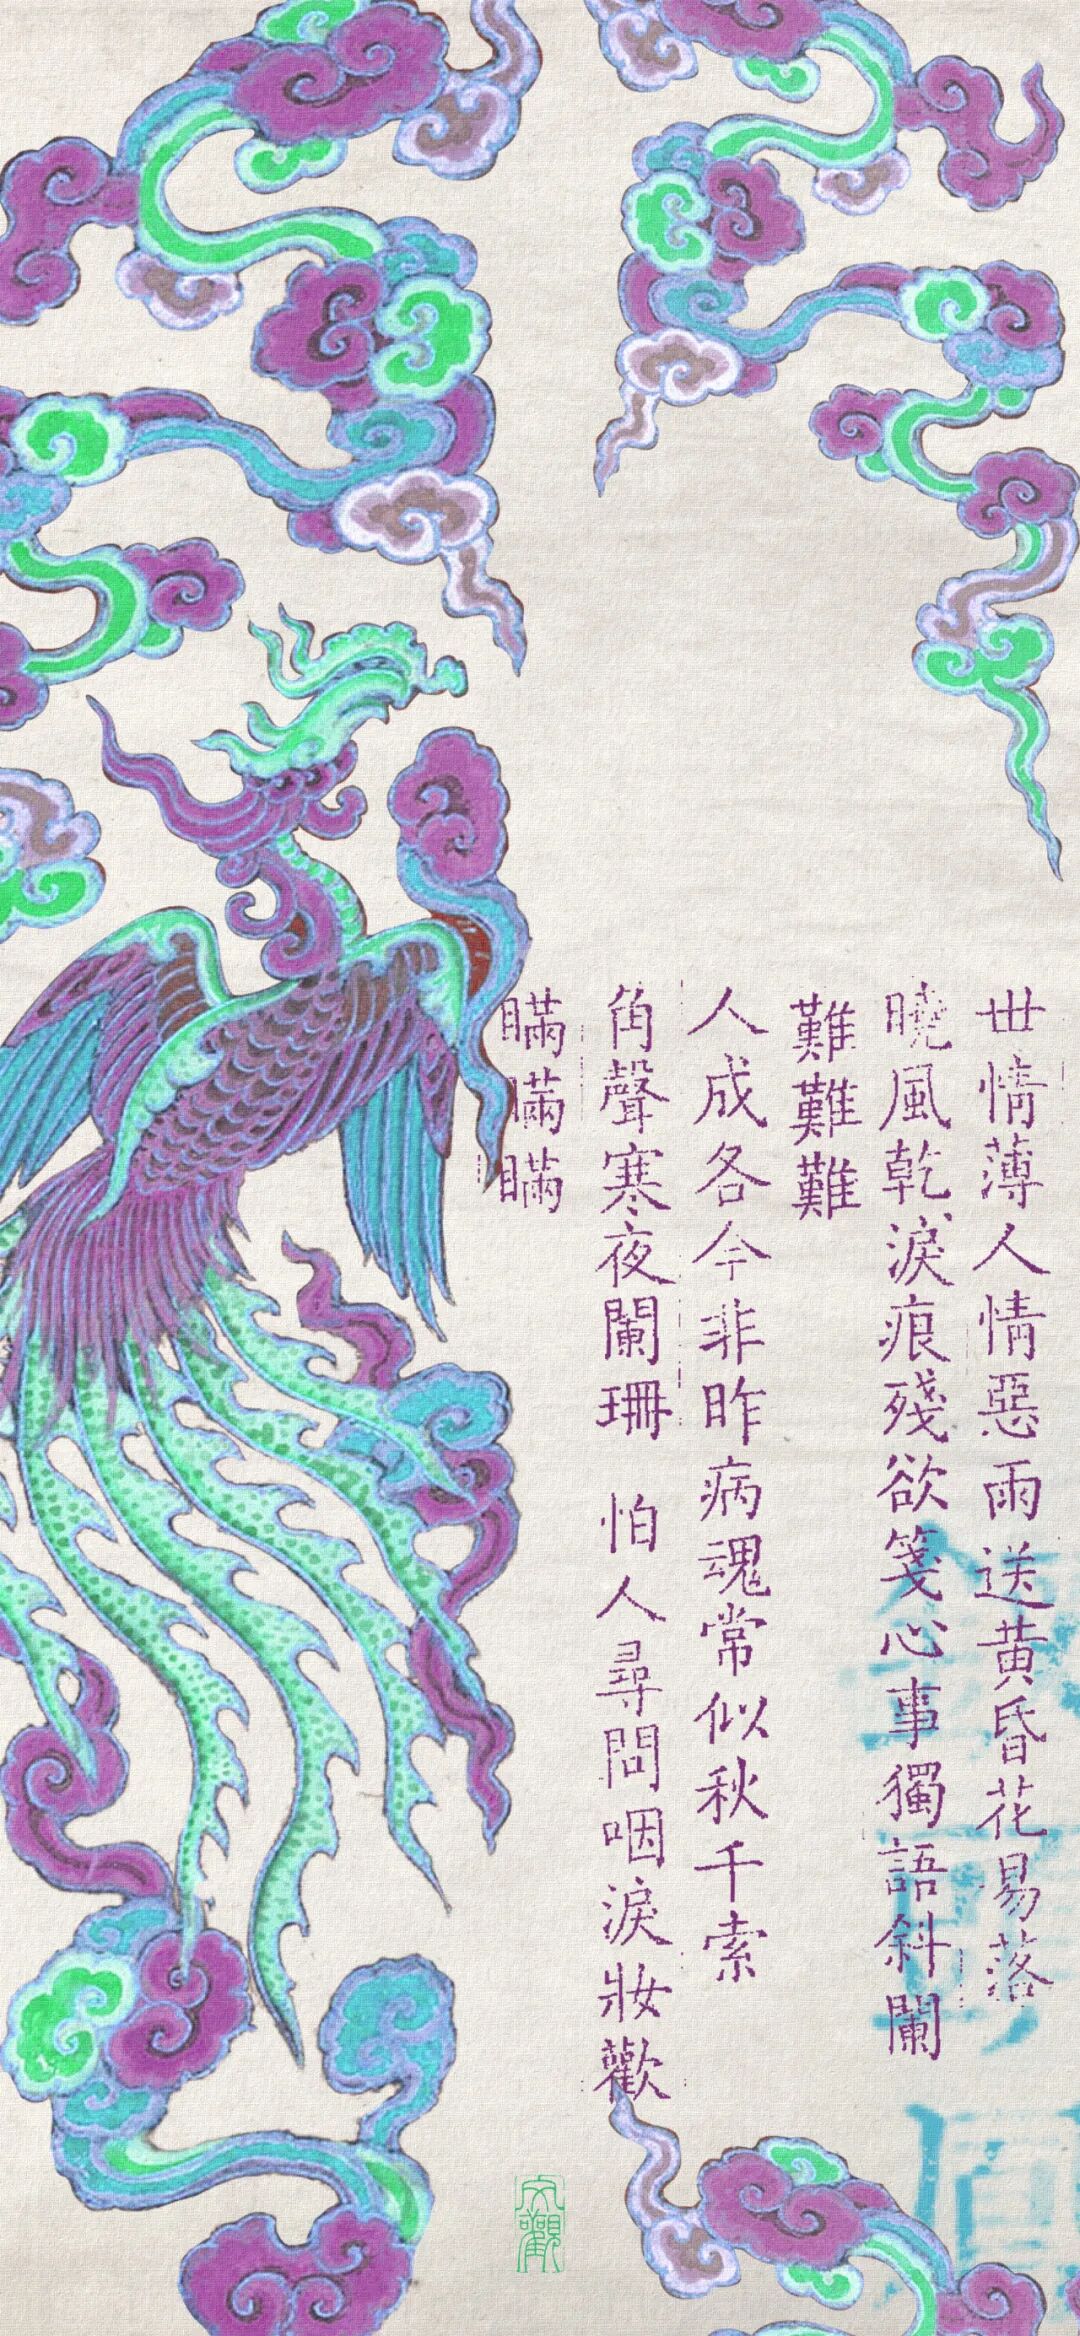 世情薄人情惡雨送黄昏花易落
曉風乾淚痕殘欲箋心事獨語斜闌
難難難
人成各今非昨病魂常似秋千索
角聲寒夜闌珊 怕人尋問咽淚妝歡
瞞瞞瞞
文觀